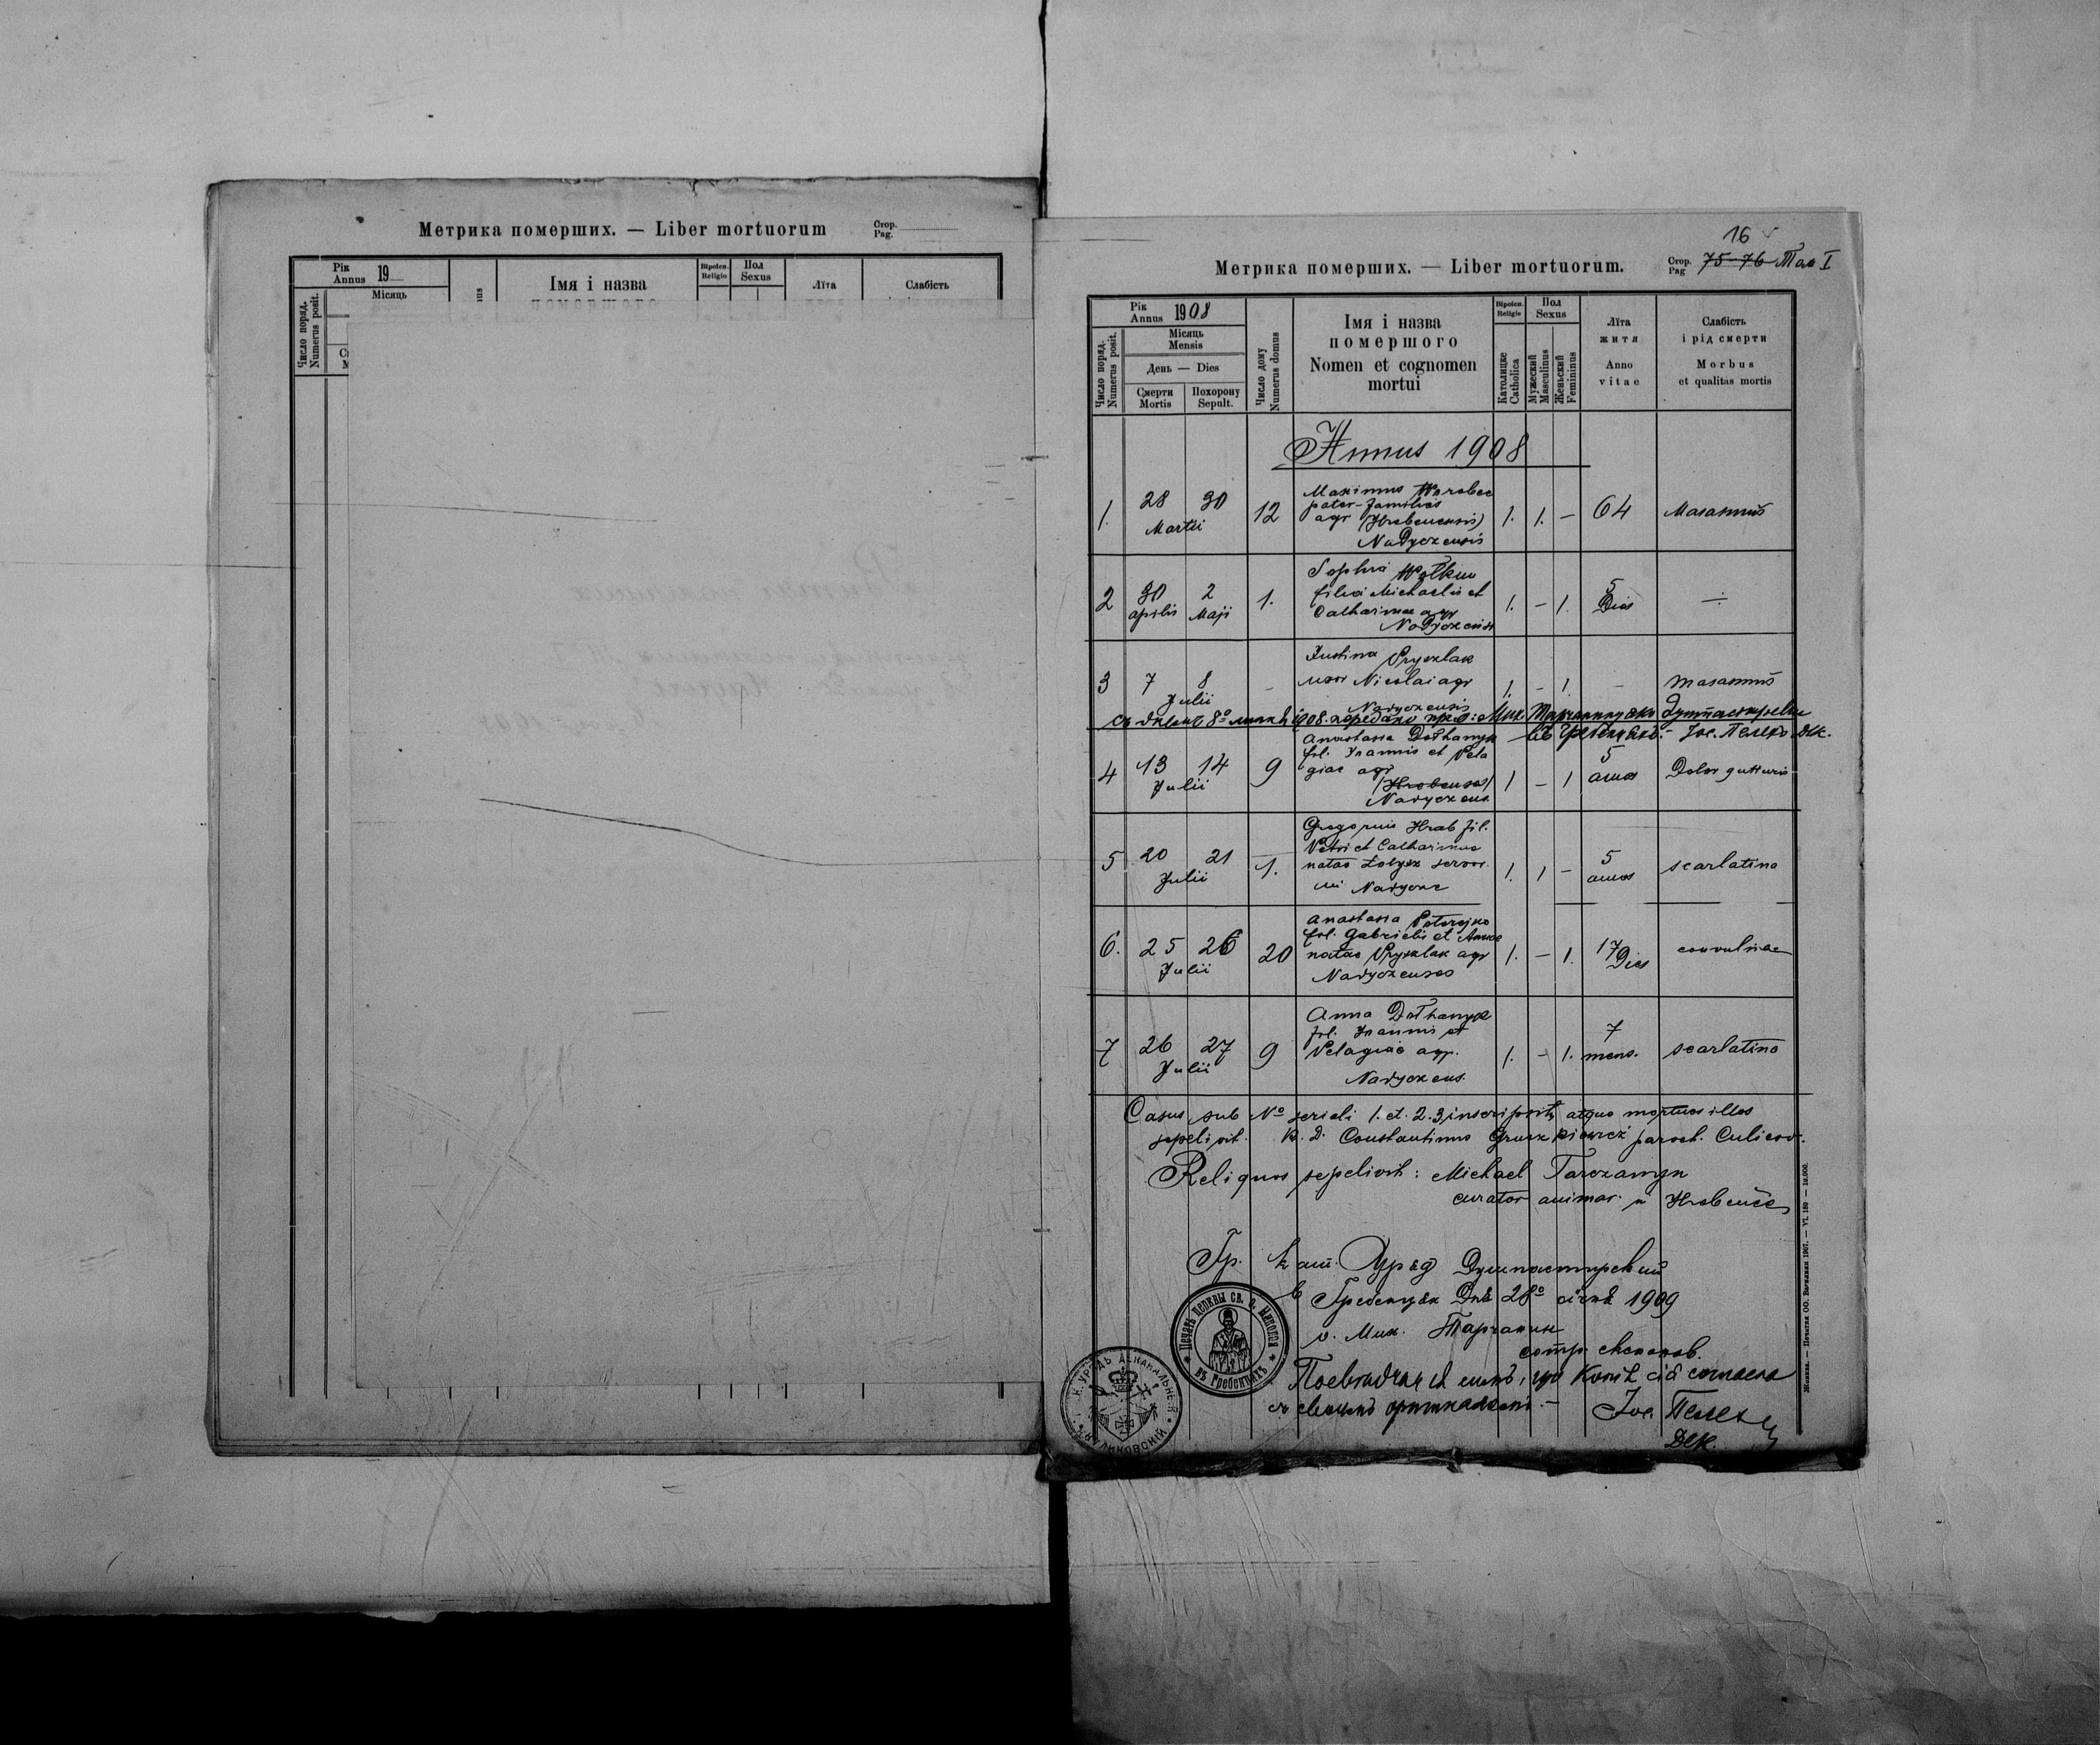 Метрика померших. — Liber mortuorum
Стор.
Pag.
Рік
Annus 19
Місяць
Число поряд.
Numerus posit.
Імя і назва
Віроісп.
Religio
Пол
Sexus
Лїта
Слабість
16
Метрика померших. — Liber mortuorum.
Стор.
Pag 75-76 Том I
Рік
Annus 1908
Місяць
Mensis
День — Dies
Смерти
Mortis
Похорону
Sepult.
Число поряд.
Numerus posit.
Число дому
Numerus domus
Імя і назва
помершого
Nomen et cognomen
mortui
Віроісп.
Religio
Католицке
Catholica
Пол
Sexus
Мужеский
Masculinus
Женьский
Femininus
Лїта
житя
Anno
vitae
Слабість
і рід смерти
Morbus
et qualitas mortis
Annus 1908
1. 28 30 Martii 12
Maximus Worobec
pater-familias
agr (Hrebenensis)
Nadyczensis
1. 1. — 64 Marasmus
2 30 aprilis 2 Maji 1.
Sophia Wołkiw
filia Michaelis et
Catharinae agr
Nadyczensis
1. — 1. 5 Dies
3 7 8 Julii -
Justina Pryszlak
uxor Nicolai agr
Nadyczensis
1. - 1. - marasmus
4 13 14 Julii 9
Anastasia Dołhanyk
fil. Joannis et Pela
giae agr
(Hrebenses)
Nadyczens.
1 — 1 5 annos Dolor gutturis
5 20 21 Julii 1.
Gregorius Hrab fil.
Petri et Catharinae
natae
Nadycze
1. 1 — 5 annos scarlatina
6. 25 26 Julii 20
Anastasia
fil. Gabrielis et Annae
natae Pryszlak agr
Nadyczenses
1. — 1. 17 Dies convulsiae
7 26 27 Julii 9
Anna Dołhanyk
fil. Joannis et
Pelagiae agr.
Nadyczens.
1. - 1. 7 mens. scarlatina
Casus sub No seriali 1. et. 2. 3, inscripsit, atque mortuos illos
sepelivit. R. D. Constantinus paroch. Culicov.
Reliquos sepelivit: Michael Tarczanyn
curator animar. in Hrebeńce
Гр. кат. Уряд Душпастирский
в Гребенцях Дня 28o січня 1909
о. Мих. Тарчанин
сотр. експонов.
Посвідчаю сим, що копія ся согласна
зі своим оригиналом. — Іос. Пелех
Дек.
Печать церкви св. о. Николая
въ Гребенцяхъ
Г. К. УРЯДЪ ДЕКАНАЛЬНЫЙ
КУЛИКОВСКІЙ